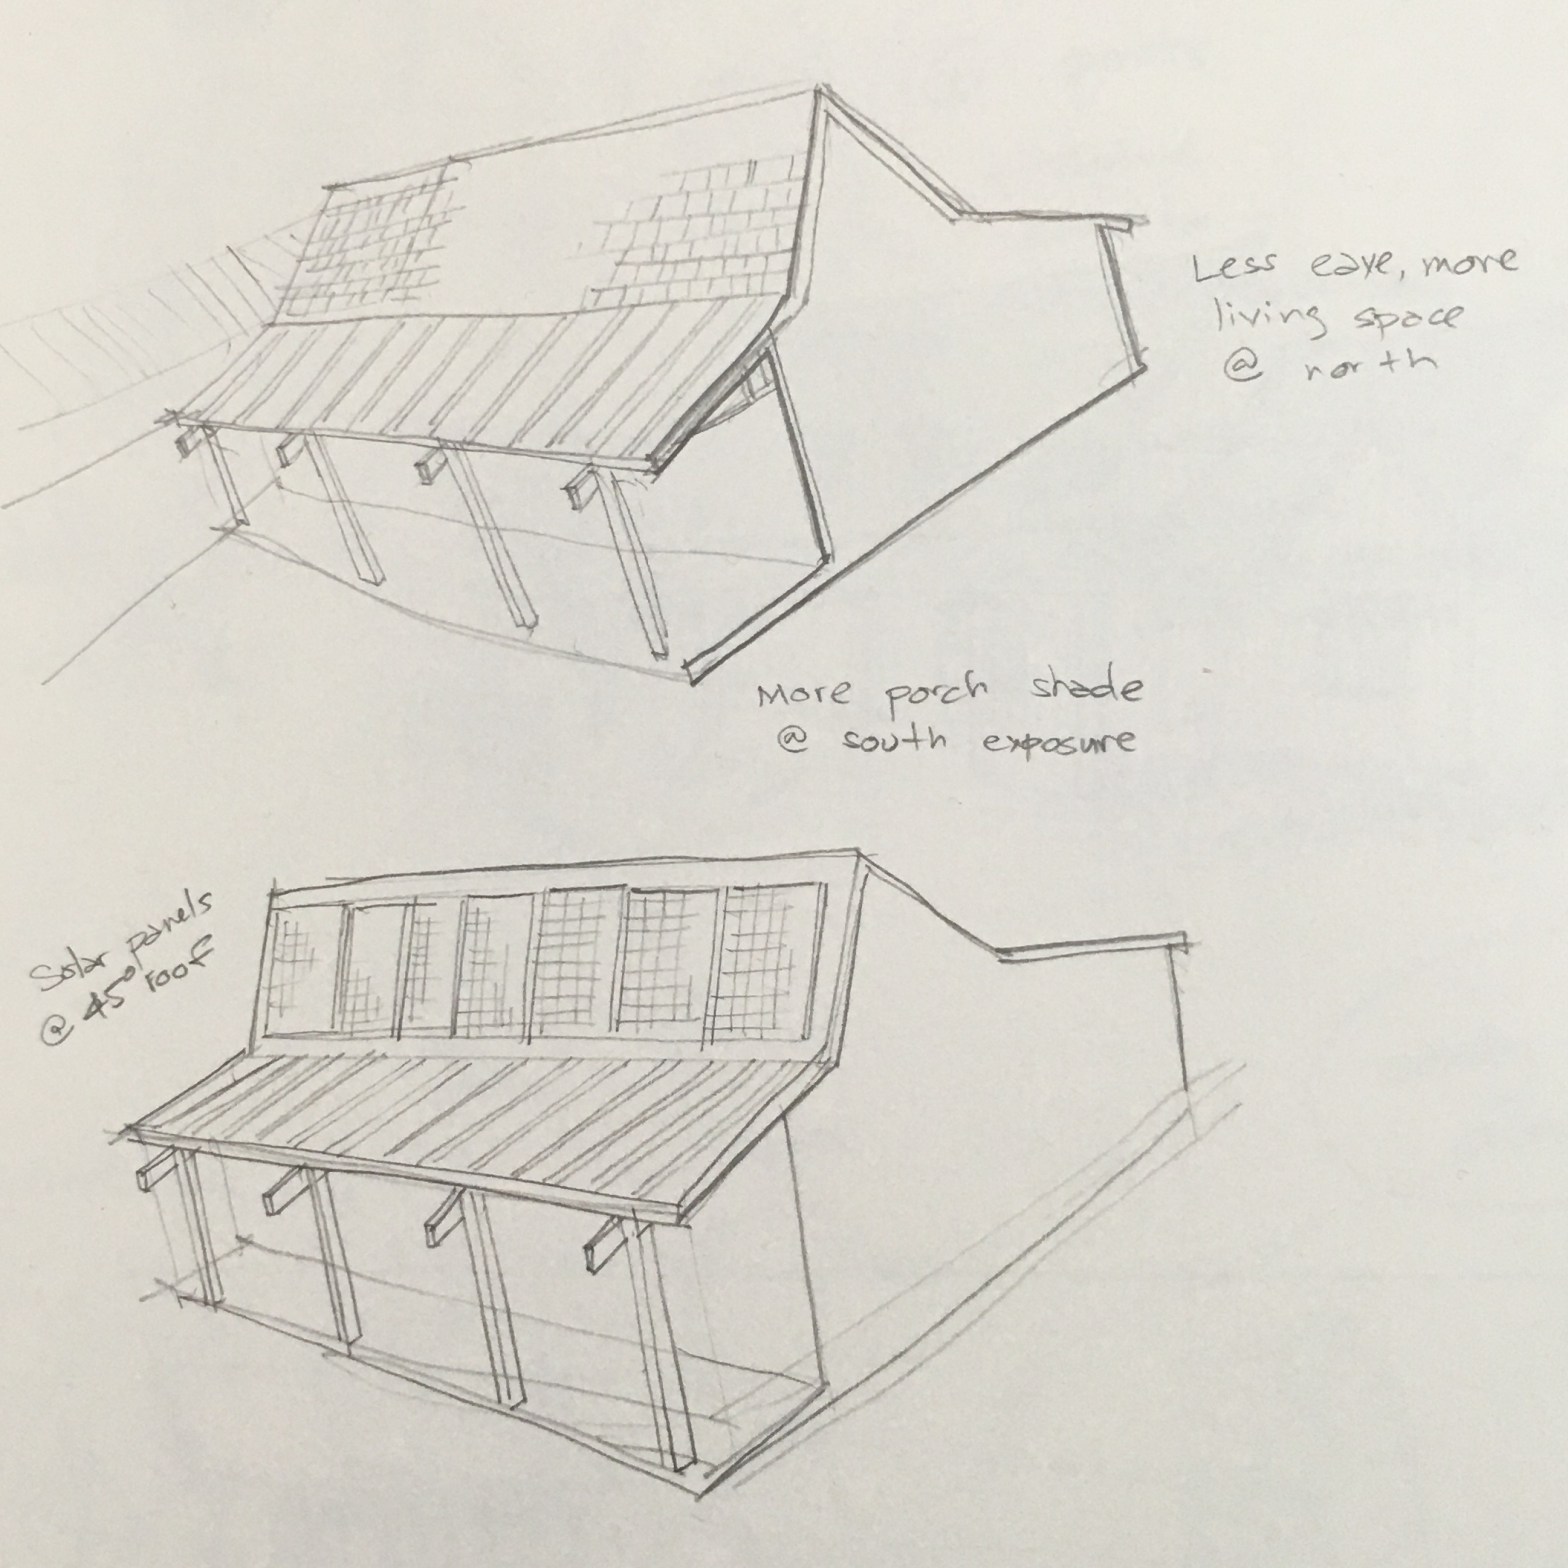 Less eave, more
living space
@ north
More porch shade
@ south exposure
Solar panels
@ 45° roof